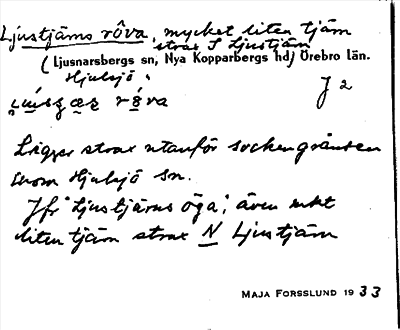 Ljustjärns rôva, mycket liten tjärn
strax S Ljustjärn
(Ljusnarsbergs sn, Nya Kopparbergs hd) Örebro län.
Hjulsjö
J 2
Ligger strax utanför sockengränsen
inom Hjulsjö sn.
Jfr "Ljustjärns öga", även mkt
liten tjärn strax N Ljustjärn
MAJA FORSSLUND 1933